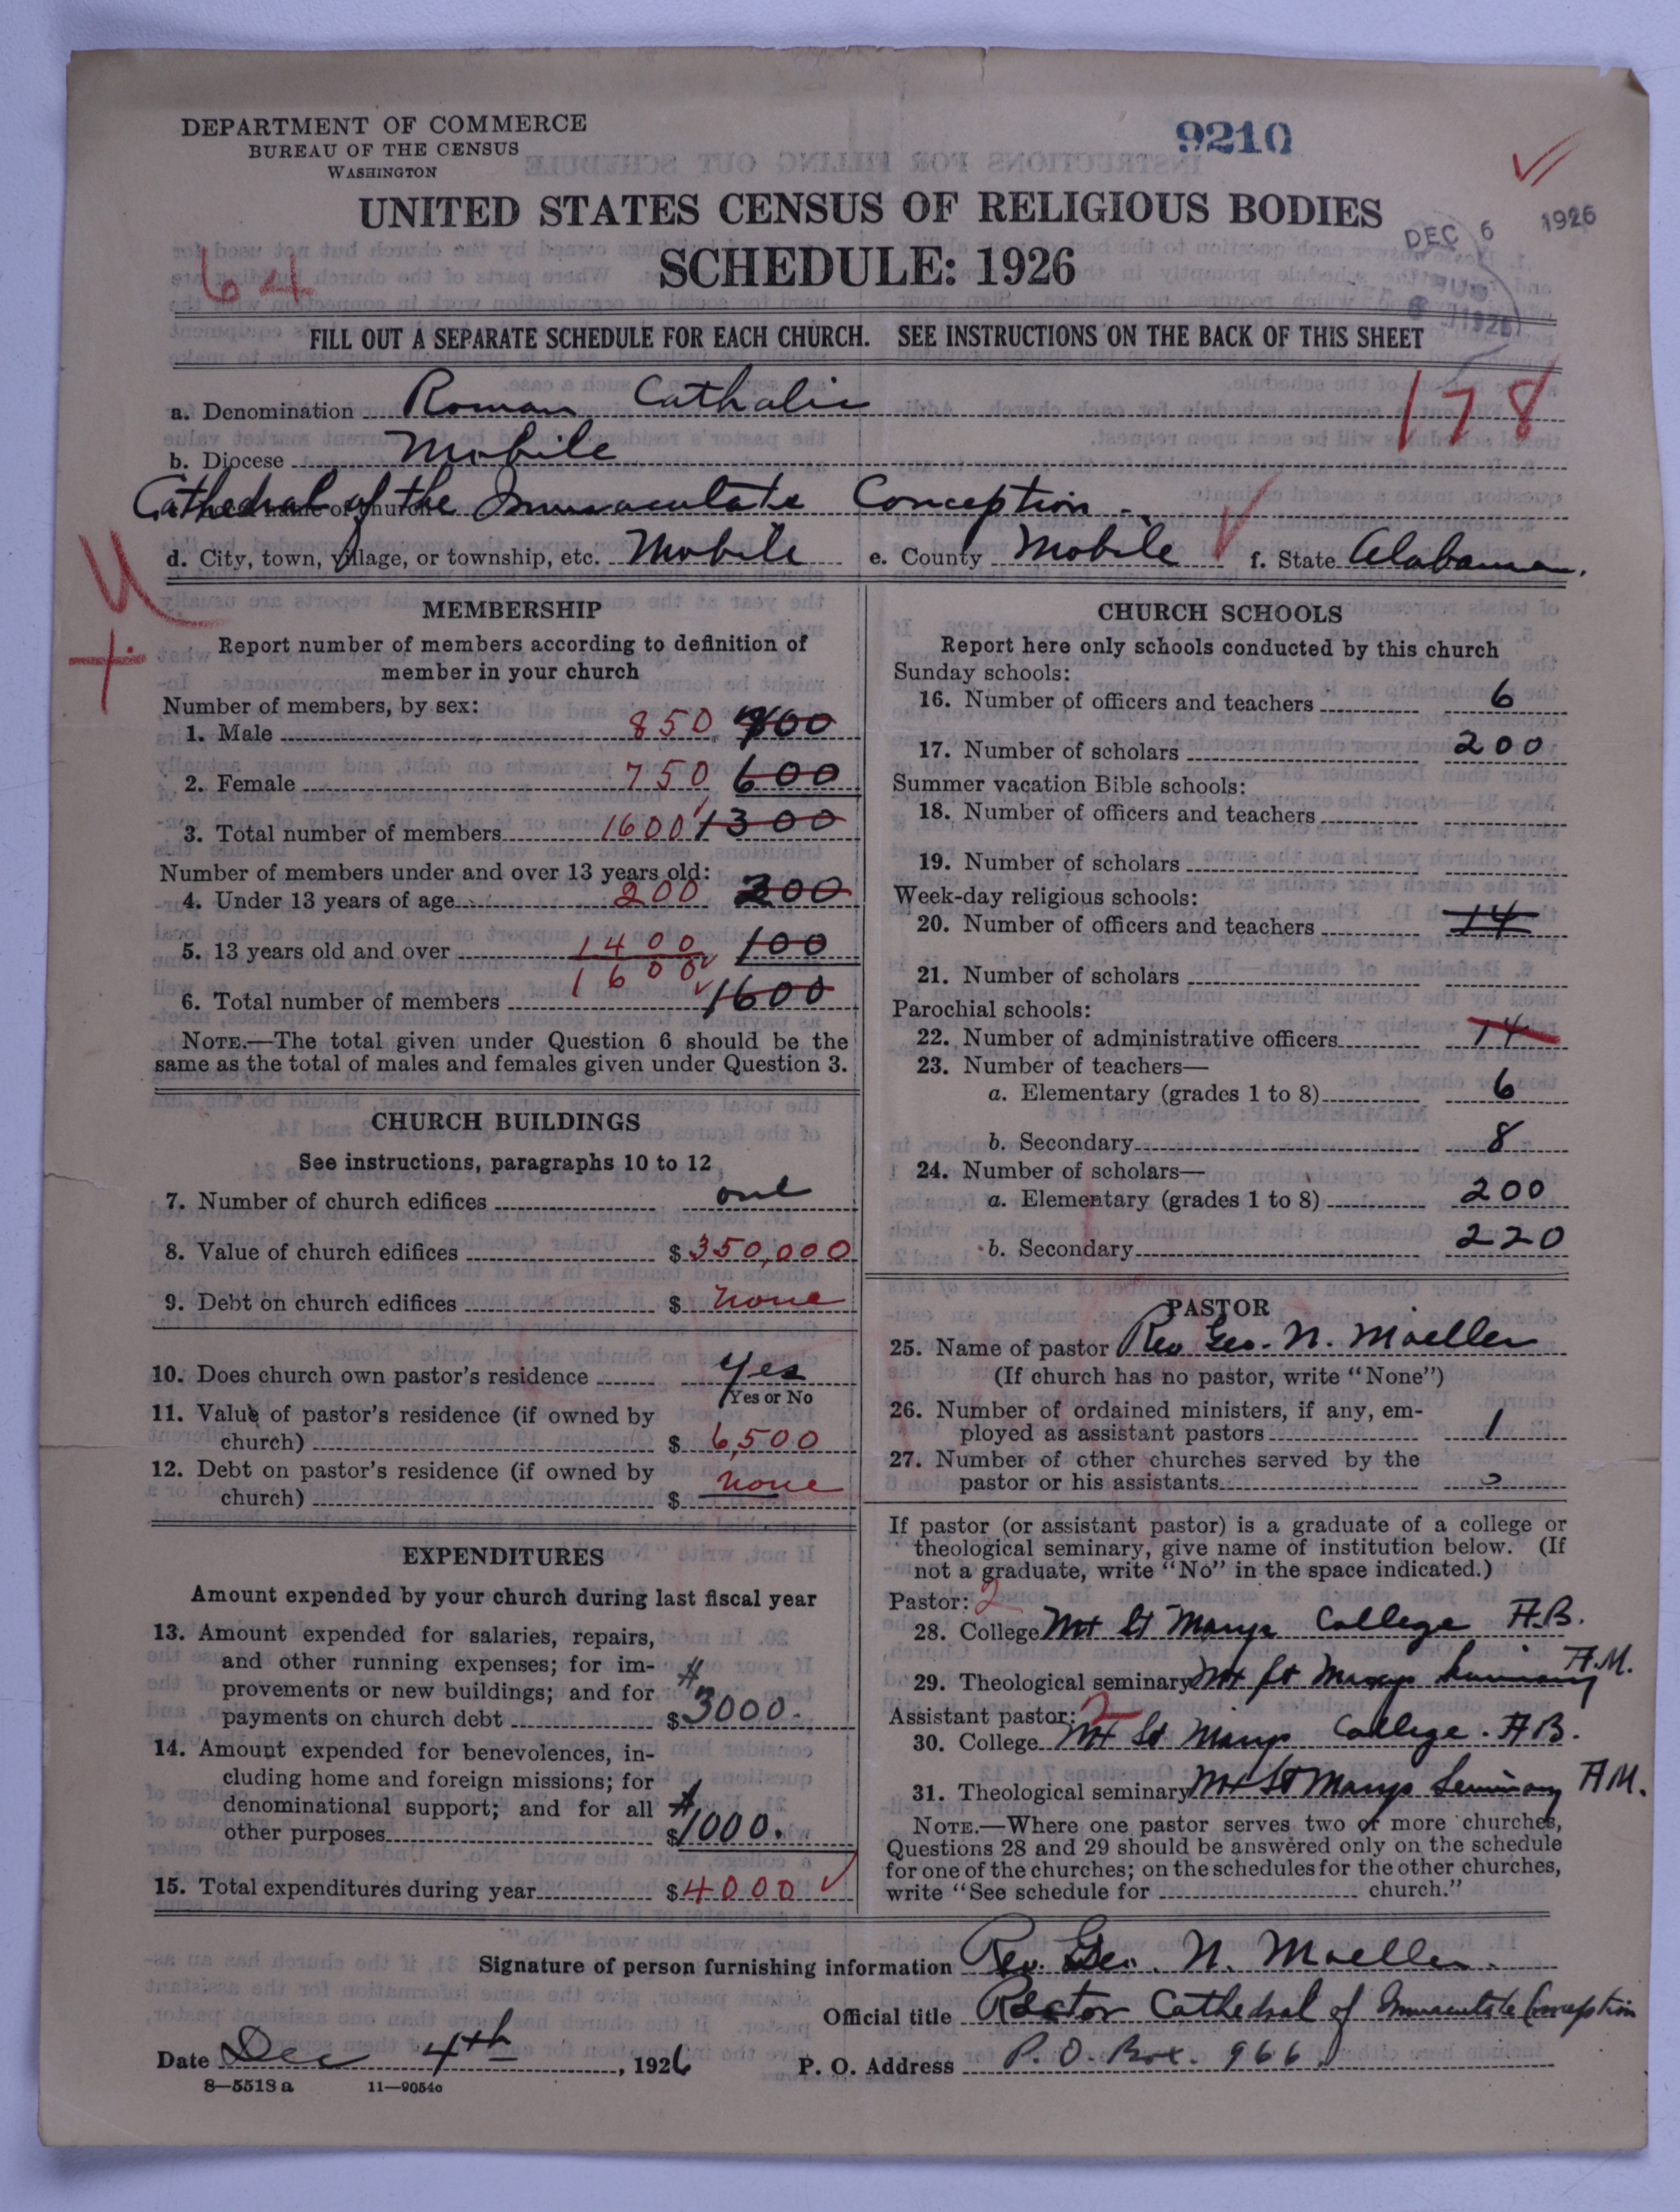 DEPARTMENT OF COMMERCE
BUREAU OF THE CENSUS
WASHINGTON
9210
UNITED STATES CENSUS OF RELIGIOUS BODIES
DEC 6 1926
SCHEDULE: 1926
64
FILL OUT A SEPARATE SCHEDULE FOR EACH CHURCH. SEE INSTRUCTIONS ON THE BACK OF THIS SHEET
178
a. Denomination Roman Catholic
b. Diocese Mobile
Cathedral of the Immaculate Conception
d. City, town, village, or township, etc. Mobile e. County Mobile f. State Alabama.
MEMBERSHIP
Report number of members according to definition of
member in your church
Number of members, by sex:
1. Male 850
2. Female 750 600
3. Total number of members 1600 1300
Number of members under and over 13 years old:
4. Under 13 years of age 200
5. 13 years old and over 1400 100
1600
6. Total number of members 1600
NOTE.—The total given under Question 6 should be the
same as the total of males and females given under Question 3.
CHURCH BUILDINGS
See instructions, paragraphs 10 to 12
7. Number of church edifices one
8. Value of church edifices $350,000
9. Debt on church edifices $ none
10. Does church own pastor's residence yes
Yes or No
11. Value of pastor's residence (if owned by
church) $ 6,500
12. Debt on pastor's residence (if owned by
church) $ none
EXPENDITURES
Amount expended by your church during last fiscal year
13. Amount expended for salaries, repairs,
and other running expenses; for im-
provements or new buildings; and for
payments on church debt $ 3000.
14. Amount expended for benevolences, in-
cluding home and foreign missions; for
denominational support; and for all
other purposes $ 1000.
15. Total expenditures during year $4000
CHURCH SCHOOLS
Report here only schools conducted by this church
Sunday schools:
16. Number of officers and teachers 6
17. Number of scholars 200
Summer vacation Bible schools:
18. Number of officers and teachers
19. Number of scholars
Week-day religious schools:
20. Number of officers and teachers 14
21. Number of scholars
Parochial schools:
22. Number of administrative officers 14
23. Number of teachers—
a. Elementary (grades 1 to 8) 6
b. Secondary 8
24. Number of scholars—
a. Elementary (grades 1 to 8) 200
b. Secondary 220
PASTOR
25. Name of pastor Rev Geo. N. Moeller
(If church has no pastor, write "None")
26. Number of ordained ministers, if any, em-
ployed as assistant pastors 1
27. Number of other churches served by the
pastor or his assistants
If pastor (or assistant pastor) is a graduate of a college or
theological seminary, give name of institution below. (If
not a graduate, write "No" in the space indicated.)
Pastor: 2
28. College Mt St Marys College A.B.
29. Theological seminary Mt St Marys Seminary A.M.
Assistant pastor: 2
30. College Mt St Marys College. A.B.
31. Theological seminary Mt St Marys Seminary A.M.
NOTE.—Where one pastor serves two or more churches,
Questions 28 and 29 should be answered only on the schedule
for one of the churches; on the schedules for the other churches,
write "See schedule for church."
Signature of person furnishing information Rev. Geo. N. Moeller.
Official title Rector Cathedral of Immaculate Conception
Date Dec 4th, 1926 P. O. Address P. O. Box. 966
8—5518 a 11—9054c